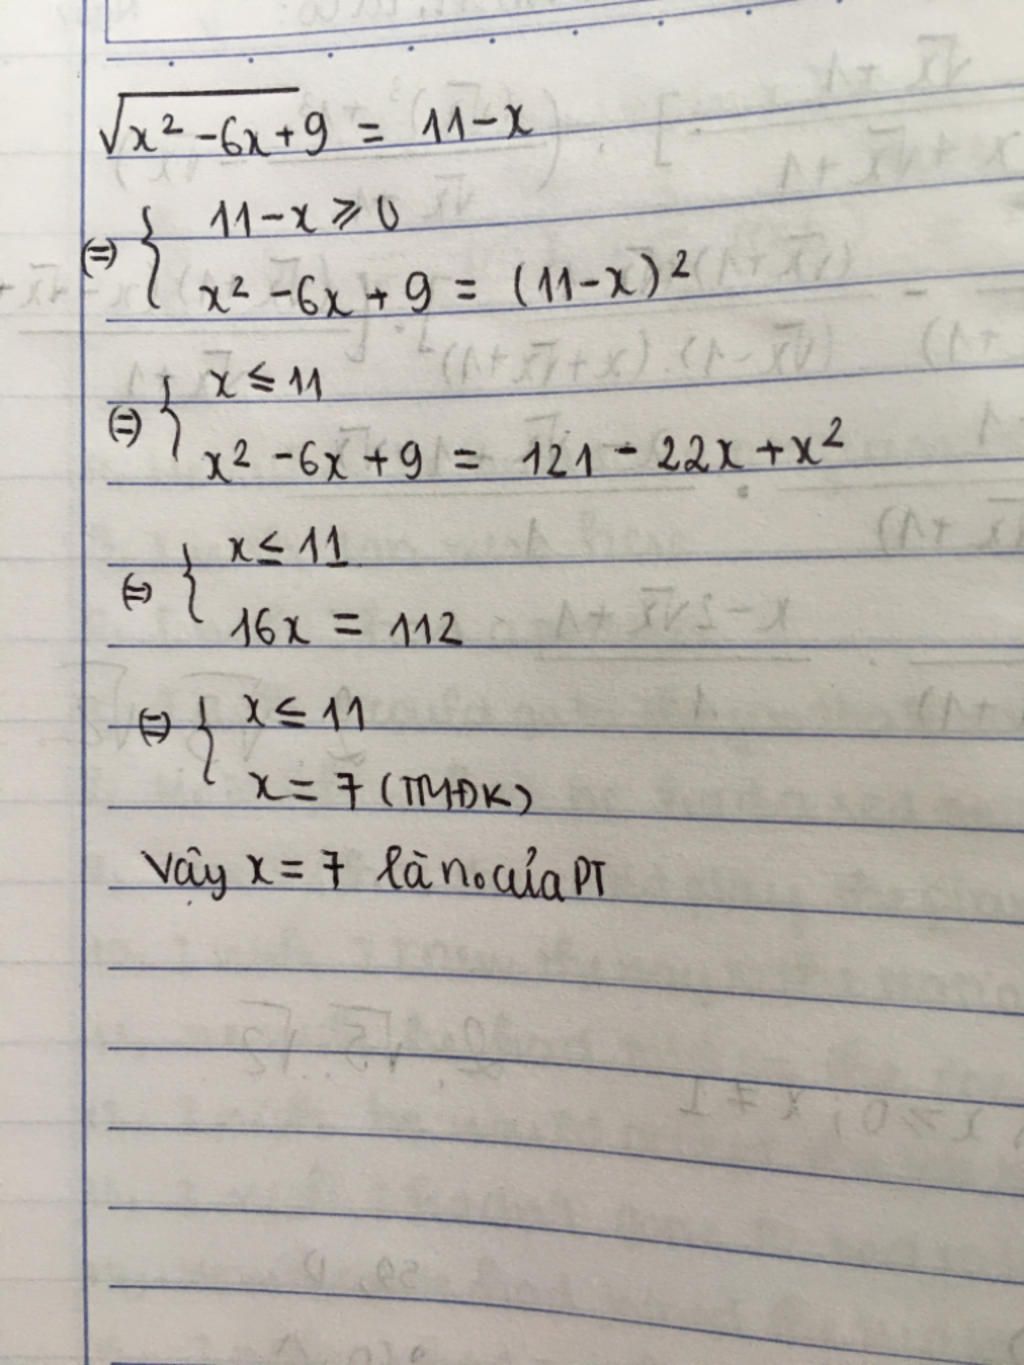 √(x² - 6x + 9) = 11 - x
⇔ { 11 - x ⩾ 0
x² - 6x + 9 = (11 - x)²
⇔ { x ≤ 11
x² - 6x + 9 = 121 - 22x + x²
⇔ { x ≤ 11
16x = 112
⇔ { x ≤ 11
x = 7 (TMĐK)
Vậy x = 7 là n₀ của PT